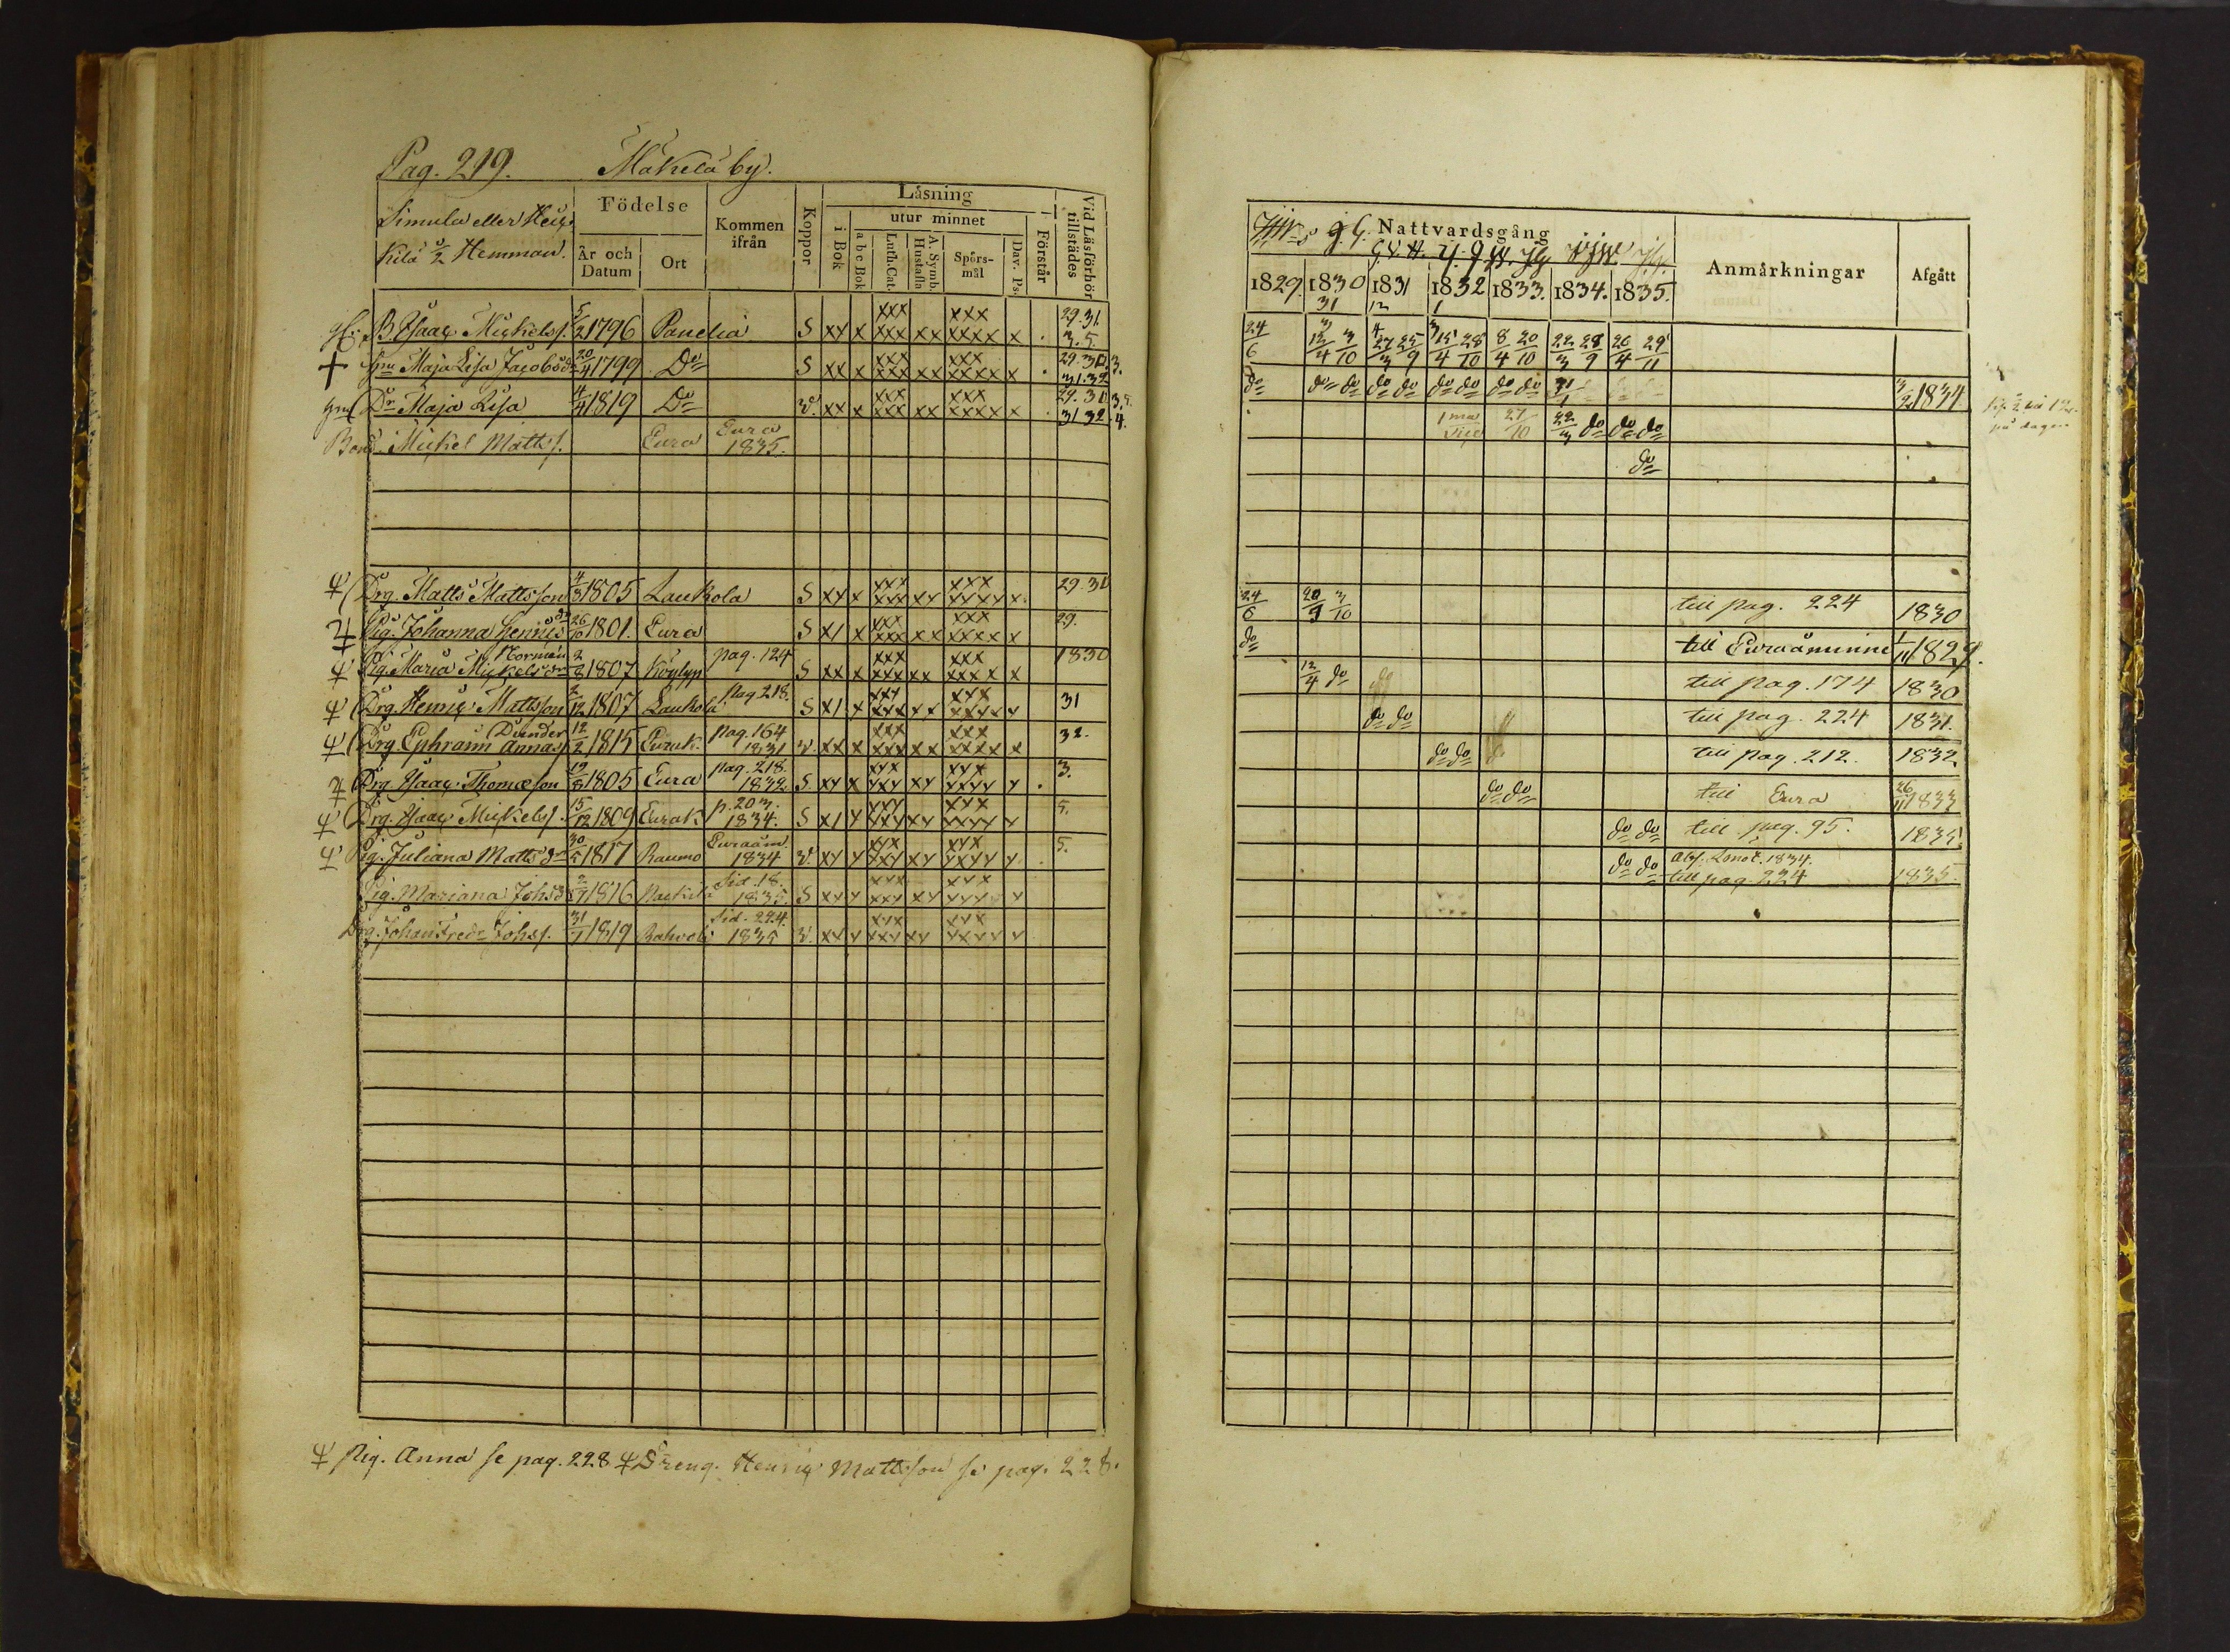 Pag. 219. Mäkilä by.
Simula eller Hei
kilä 1/2 Hemman.
Födelse
År och Datum
Ort
Kommen ifrån
Koppor
Läsning
i Bok
utur minnet
a b c Bok
Luth. Cat.
A. Symb. Hustafla
Spörsmål
Dav. Ps.
Förstår
Vid Läsförhör tillstädes
B. Isaac Mickelss. 5/2 1796 Panelia S xx x xxx xxx xx xxx xxxx x . 29.31. 3.5.
Maja Lisa Jacobsdr 20/4 1799 Do S xx x xxx xxx xx xxx xxxx x . 29.30. 3. 31.32
Dr Maja Lisa 4/4 1819 Do v. xx x xxx xxx xx xxx xxxx x . 29.30 31 32. 4.
Bond. Mickel Matts s. Eura Eura 1835.
Drg. Matts Mattsson 4/3 1805 Laukola S xx x xxx xxx xx xxx xxxx x. 29.30
Pig. Johanna Henricsdr 26/10 1801. Eura S x/ x xxx xxx xx xxx xxxx x 29.
Norman
Pig. Maria Mickelsdr 2/8 1807 Köylyp pag. 124 S xx x xxx xxx xx xxx xxxx x 1830
Drg. Henric Mattsson 2/12 1807 Laukola pag 218. S x/ x xxx xxx xx xxx xxxx x 31
Dunder
Drg. Ephraim Annas. 12/2 1815 Eurak. pag. 164 1831 v. xx x xxx xxx xx xxx xxxx x 32.
Drg. Isaac Thomæson 19/8 1805 Eura pag. 218. 1832 S xx x xxx xxx xx xxx xxxx x . 3.
Drg. Isaac Mickelss. 15/12 1809 Eurak. p. 203. 1834. S x/ x xxx xxx xx xxx xxxx x 5.
Pig. Juliana Mattsdr 30/5 1817 Raumo Euraåm. 1834 v. xx x xxx xxx xx xxx xxxx x . 5.
Pig. Mariana Johsdr 2/7 1816 Sid. 18. 1835. S xx x xxx xxx xx xxx xxxx x
Drg. Johan Fredr Johss. 31/7 1819 Sid. 224. 1835 v. xx x xxx xxx xx xxx xxxx x
Pig. Anna se pag. 228 Dreng. Henric Mattsson se pag. 228.
Nattvardsgång
Anmärkningar
Afgått
1829. 1830 1831 1832 1833. 1834. 1835.
31 12 1
24/6 12/4 3/10 27/3 25/9 15/4 28/10 8/4 20/10 22/3 28/9 26/4 29/11
do do do do do do do do do 3/2 1834
1ma vice 27/10 22/3 do do do
på dagen
do
24/6 20/9 3/10 till pag. 224 1830
do till Euraåminne 1/11 1829.
12/4 do till pag. 174 1830
do do till pag. 224 1831.
do do till pag. 212. 1832
do do till Eura 26/11 1833
do do till pag. 95. 1835.
do do 1834. till pag. 224 1835.